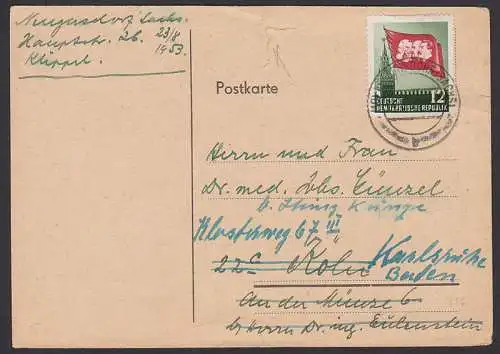 Neugersdorf Sachs.
Hauptstr. 26. 23/8
Klippel. 1953.
Postkarte
DEUTSCHE 12
DEMOKRATISCHE REPUBLIK
Herrn und Frau
Dr. med. Jhs. Günzel
b.
Klosterweg 67 III
22c Köln Karlsruhe
Baden
An der Münze 6
b/ Herrn Dr. ing. Eulenstein